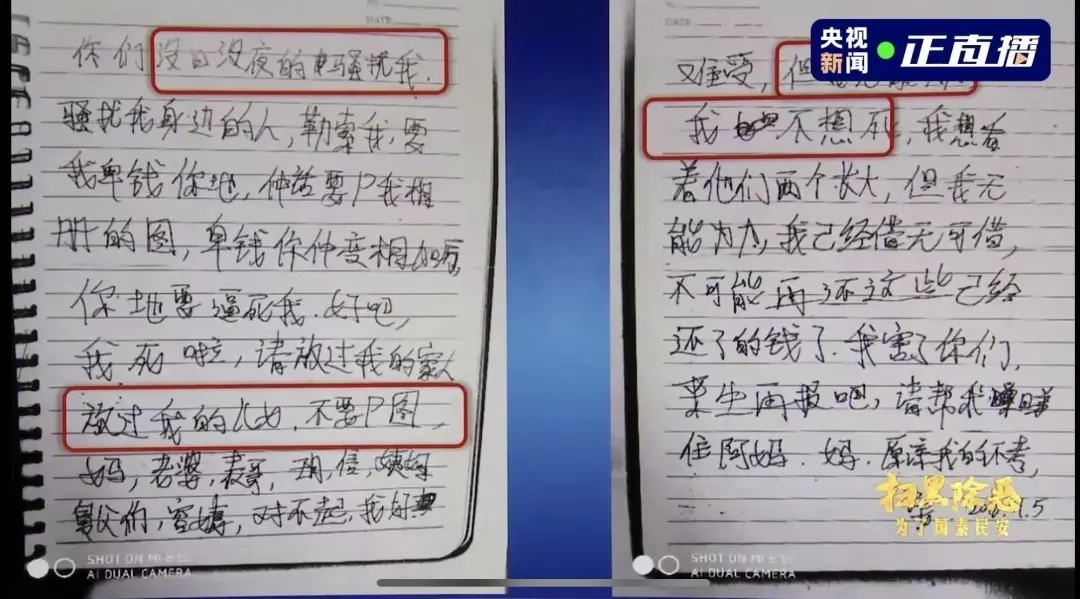 你们没日没夜的电骚扰我.
骚扰我身边的人,勒索我,要
我卑钱你地,仲话要P我相
册的图,卑钱你仲变相
你地要逼死我.好吧,
我死啦,请放过我的家人
放过我的儿女.不要P图,
妈,老婆,表哥,
舅父们,对不起,我好
又难受,但
我不想死,我想看
着他们两个长大,但我无
能为力,我已经借无可借,
不可能再还这些已经
还了的钱了.我害了你们,
来生再报吧,请帮我
住阿妈.妈.原谅我的不孝,
1.5
央视新闻
正直播
扫黑除恶
为了国泰民安
SHOT ON MI 8 SE
AI DUAL CAMERA
SHOT ON MI 8 SE
AI DUAL CAMERA
DATE